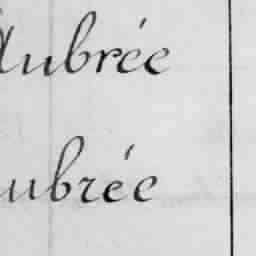 Aubrée
aubrée